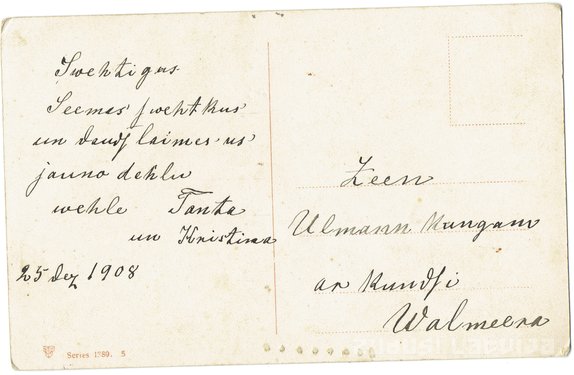 Swehtigus
Seemas swehtkus
un daudſ laimes us
jauno dehlu
wehle Tanta
un Kristina
25 Dez 1908
Zeen
Ulmann Kungam
ar Kundſi
Walmeera
Series 1380. 5